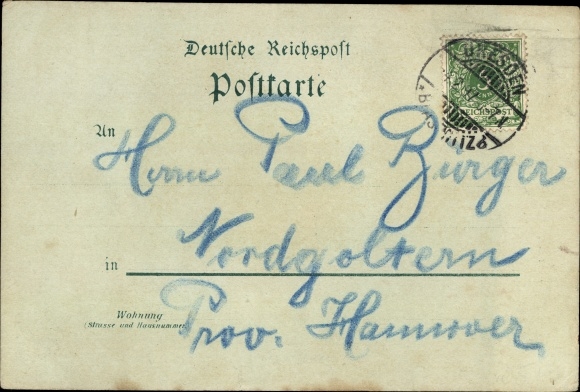 Deutsche Reichspost
Postkarte
DRESDEN
REICHSPOST
An
Herrn Paul Bürger
Nordgoltern
in
Wohnung
(Strasse und Hausnummer)
Prov. Hannover